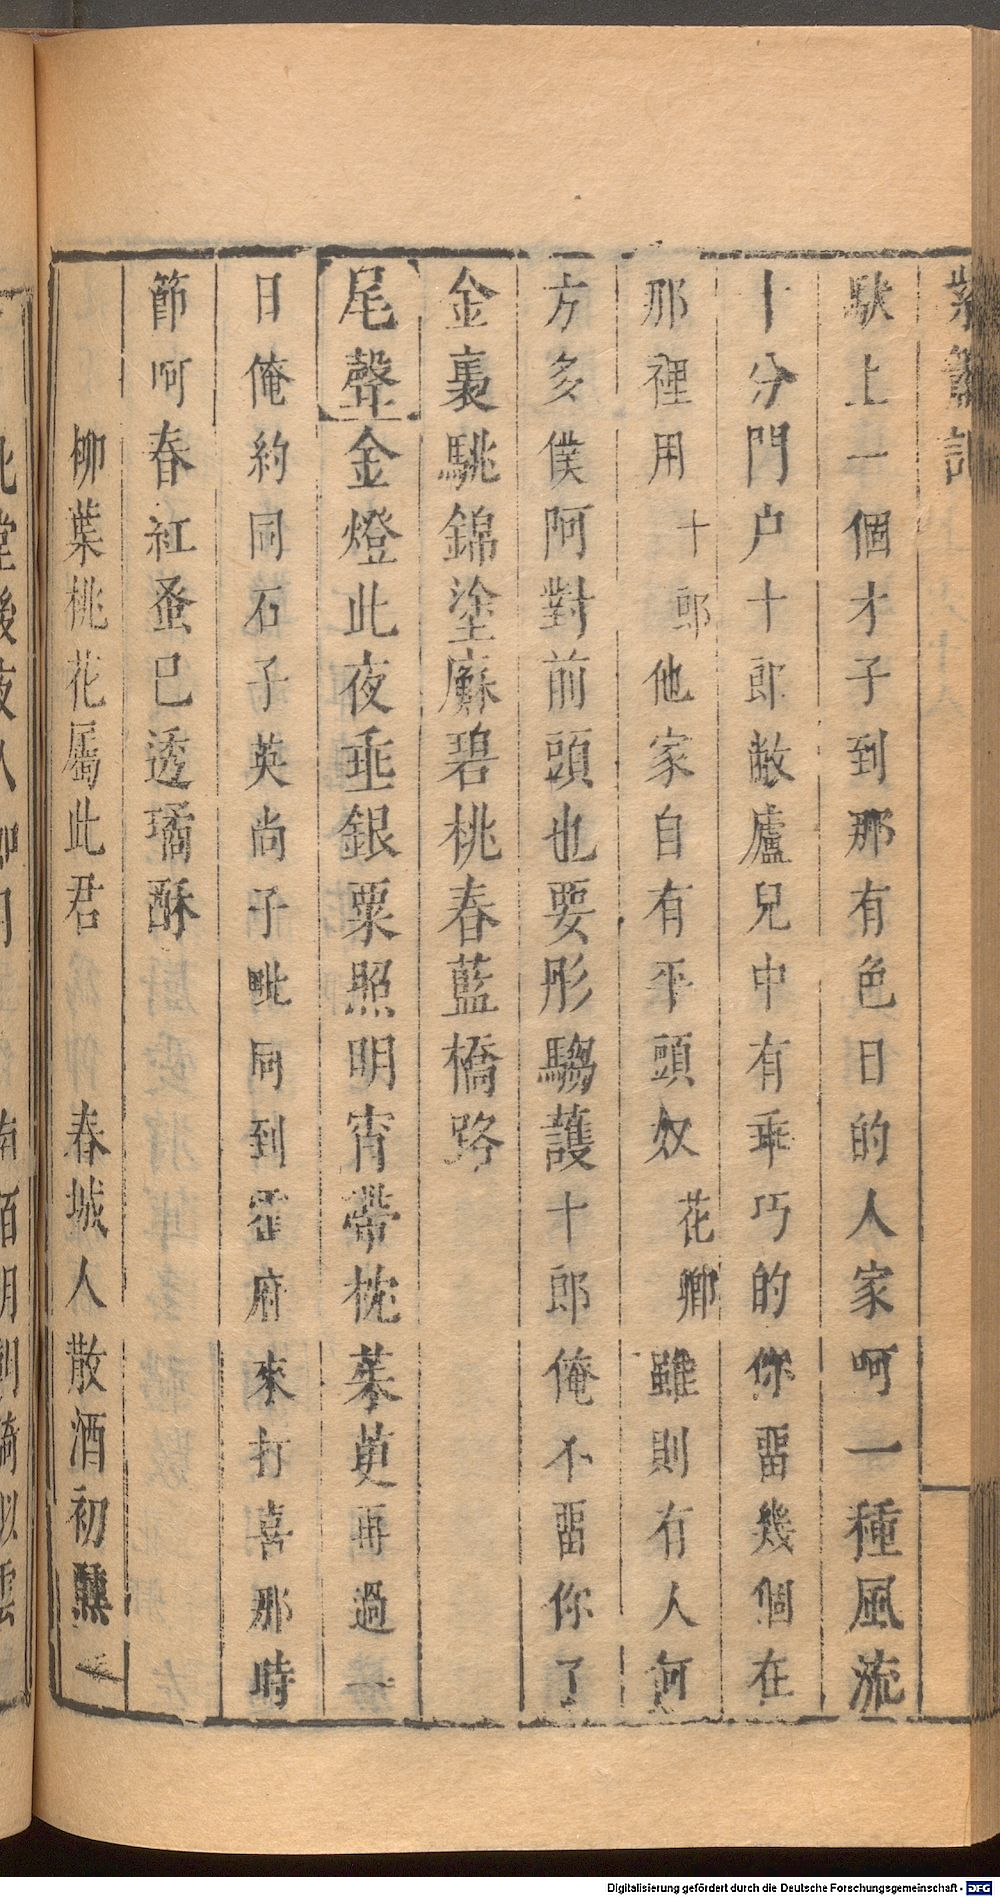 紫簫記
馱上一個才子到那有色目的人家呵一種風流
十分門户十郎敝廬兒中有乖巧的你畱幾個在
那裡用十郎他家自有平頭奴花卿雖則有人何
方多僕阿對前頭也要彤騶護十郎俺不畱你了
金裹駣錦塗蘇碧桃春藍橋路
尾聲金燈此夜垂銀粟照明宵帶枕
日俺約同石子英尚子毗同到霍府來打喜那時
節呵春紅蚤已透璚酥
柳葉桃花屬此君 春城人散酒初醺
Digitalisierung gefördert durch die Deutsche Forschungsgemeinschaft - DFG